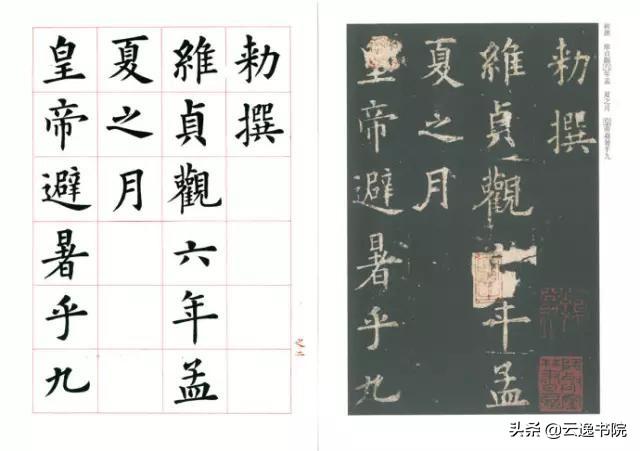 勑撰
維貞觀六年孟
夏之月
皇帝避暑乎九
之二
勑撰 維貞觀六年孟 夏之月 皇帝避暑乎九
勑撰
維貞觀年孟
夏之月
皇帝避暑乎九
头条 @云逸书院